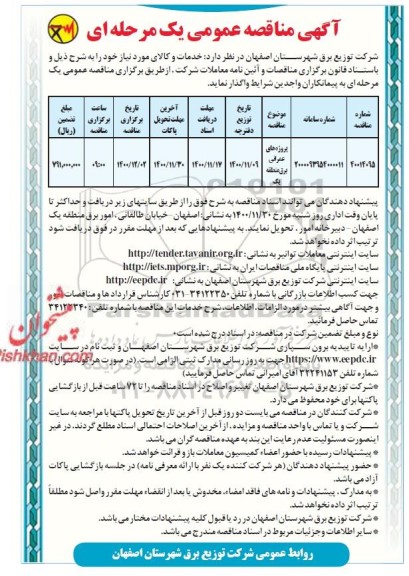 آگهی مناقصه عمومی یک مرحله ای
شرکت توزیع برق شهرستان اصفهان در نظر دارد: خدمات و کالای مورد نیاز خود را به شرح ذیل و
باستناد قانون برگزاری مناقصات و آئین نامه معاملات شرکت ، ازطریق برگزاری مناقصه عمومی یک
مرحله ای به پیمانکاران واجدین شرایط واگذار نماید.
شماره مناقصه
شماره سامانه
موضوع مناقصه
تاریخ توزیع دفترچه
مهلت دریافت اسناد
آخرین مهلت تحویل پاکات
تاریخ برگزاری مناقصه
ساعت برگزاری مناقصه
مبلغ تضمین (ریال)
پروژه‌های عمرانی برق منطقه یک
۱۴۰۰/۱۱/۰۹
۱۴۰۰/۱۱/۱۷
۱۴۰۰/۱۱/۳۰
۱۴۰۰/۱۲/۰۲
۰۹:۰۰
پیشنهاد دهندگان می توانند اسناد مناقصه به شرح فوق را از طریق سایتهای زیر دریافت و حداکثر تا
پایان وقت اداری روز شنبه مورخ ۱۴۰۰/۱۱/۳۰ به نشانی: اصفهان - خیابان طالقانی ، امور برق منطقه یک
اصفهان - دبیرخانه امور ، تحویل نمایند. به پیشنهادهایی که بعد از مهلت مقرر در فوق دریافت شود
ترتیب اثر داده نخواهد شد.
سایت اینترنتی معاملات توانیر به نشانی: http://tender.tavanir.org.ir
سایت اینترنتی پایگاه ملی مناقصات ایران به نشانی: http://iets.mporg.ir
سایت اینترنتی شرکت توزیع برق شهرستان اصفهان به نشانی: http://eepdc.ir
جهت کسب اطلاعات بازرگانی با شماره تلفن ۳۴۱۲۲۳۵۰-۰۳۱ کارشناس قرارداد ها و مناقصات
و جهت آگاهی بیشتر در مورد الزامات، اطلاعات، شرح خدمات این مناقصه با شماره تلفن:
تماس حاصل فرمائید.
نوع و مبلغ تضمین شرکت در مناقصه: در اسناد درج شده است
*ارائه تاییدیه برون سپاری شرکت توزیع برق شهرستان اصفهان و ثبت نام در سایت
https://www.eepdc.ir جهت به روز رسانی مدارک ثبتی الزامی است. (در صورت هرگونه سوال با
شماره تلفن ۳۲۲۴۱۱۵۳ آقای امیرانی تماس حاصل فرمایید)
*شرکت توزیع برق شهرستان اصفهان تغییر و اصلاح در اسناد مناقصه را تا ۷۲ ساعت قبل از بازگشایی
پاکتها برای خود محفوظ می دارد.
*شرکت کنندگان در مناقصه می بایست دو روز قبل از آخرین تاریخ تحویل پاکتها با مراجعه به سایت
شرکت و یا تماس با واحد مناقصه و مزایده ، از آخرین اصلاحات احتمالی اسناد مطلع گردند. در غیر
اینصورت مسئولیت عدم رعایت این بند به عهده مناقصه گران می باشد.
*پیشنهادات رسیده با حضور اعضاء کمیسیون معاملات باز و قرائت خواهد شد.
*حضور پیشنهاد دهندگان (هر شرکت کننده یک نفر با ارائه معرفی نامه) در جلسه بازگشایی پاکات
آزاد می باشد.
*به مدارک ، پیشنهادات و نامه های فاقد امضاء، مخدوش یا بعد از انقضاء مهلت مقرر واصل شود مطلقاً
ترتیب اثر داده نخواهد شد.
*شرکت توزیع برق شهرستان اصفهان در رد یا قبول کلیه پیشنهادات مختار می باشد.
*سایر اطلاعات و جزئیات مربوط در اسناد مناقصه مندرج می باشد.
روابط عمومی شرکت توزیع برق شهرستان اصفهان